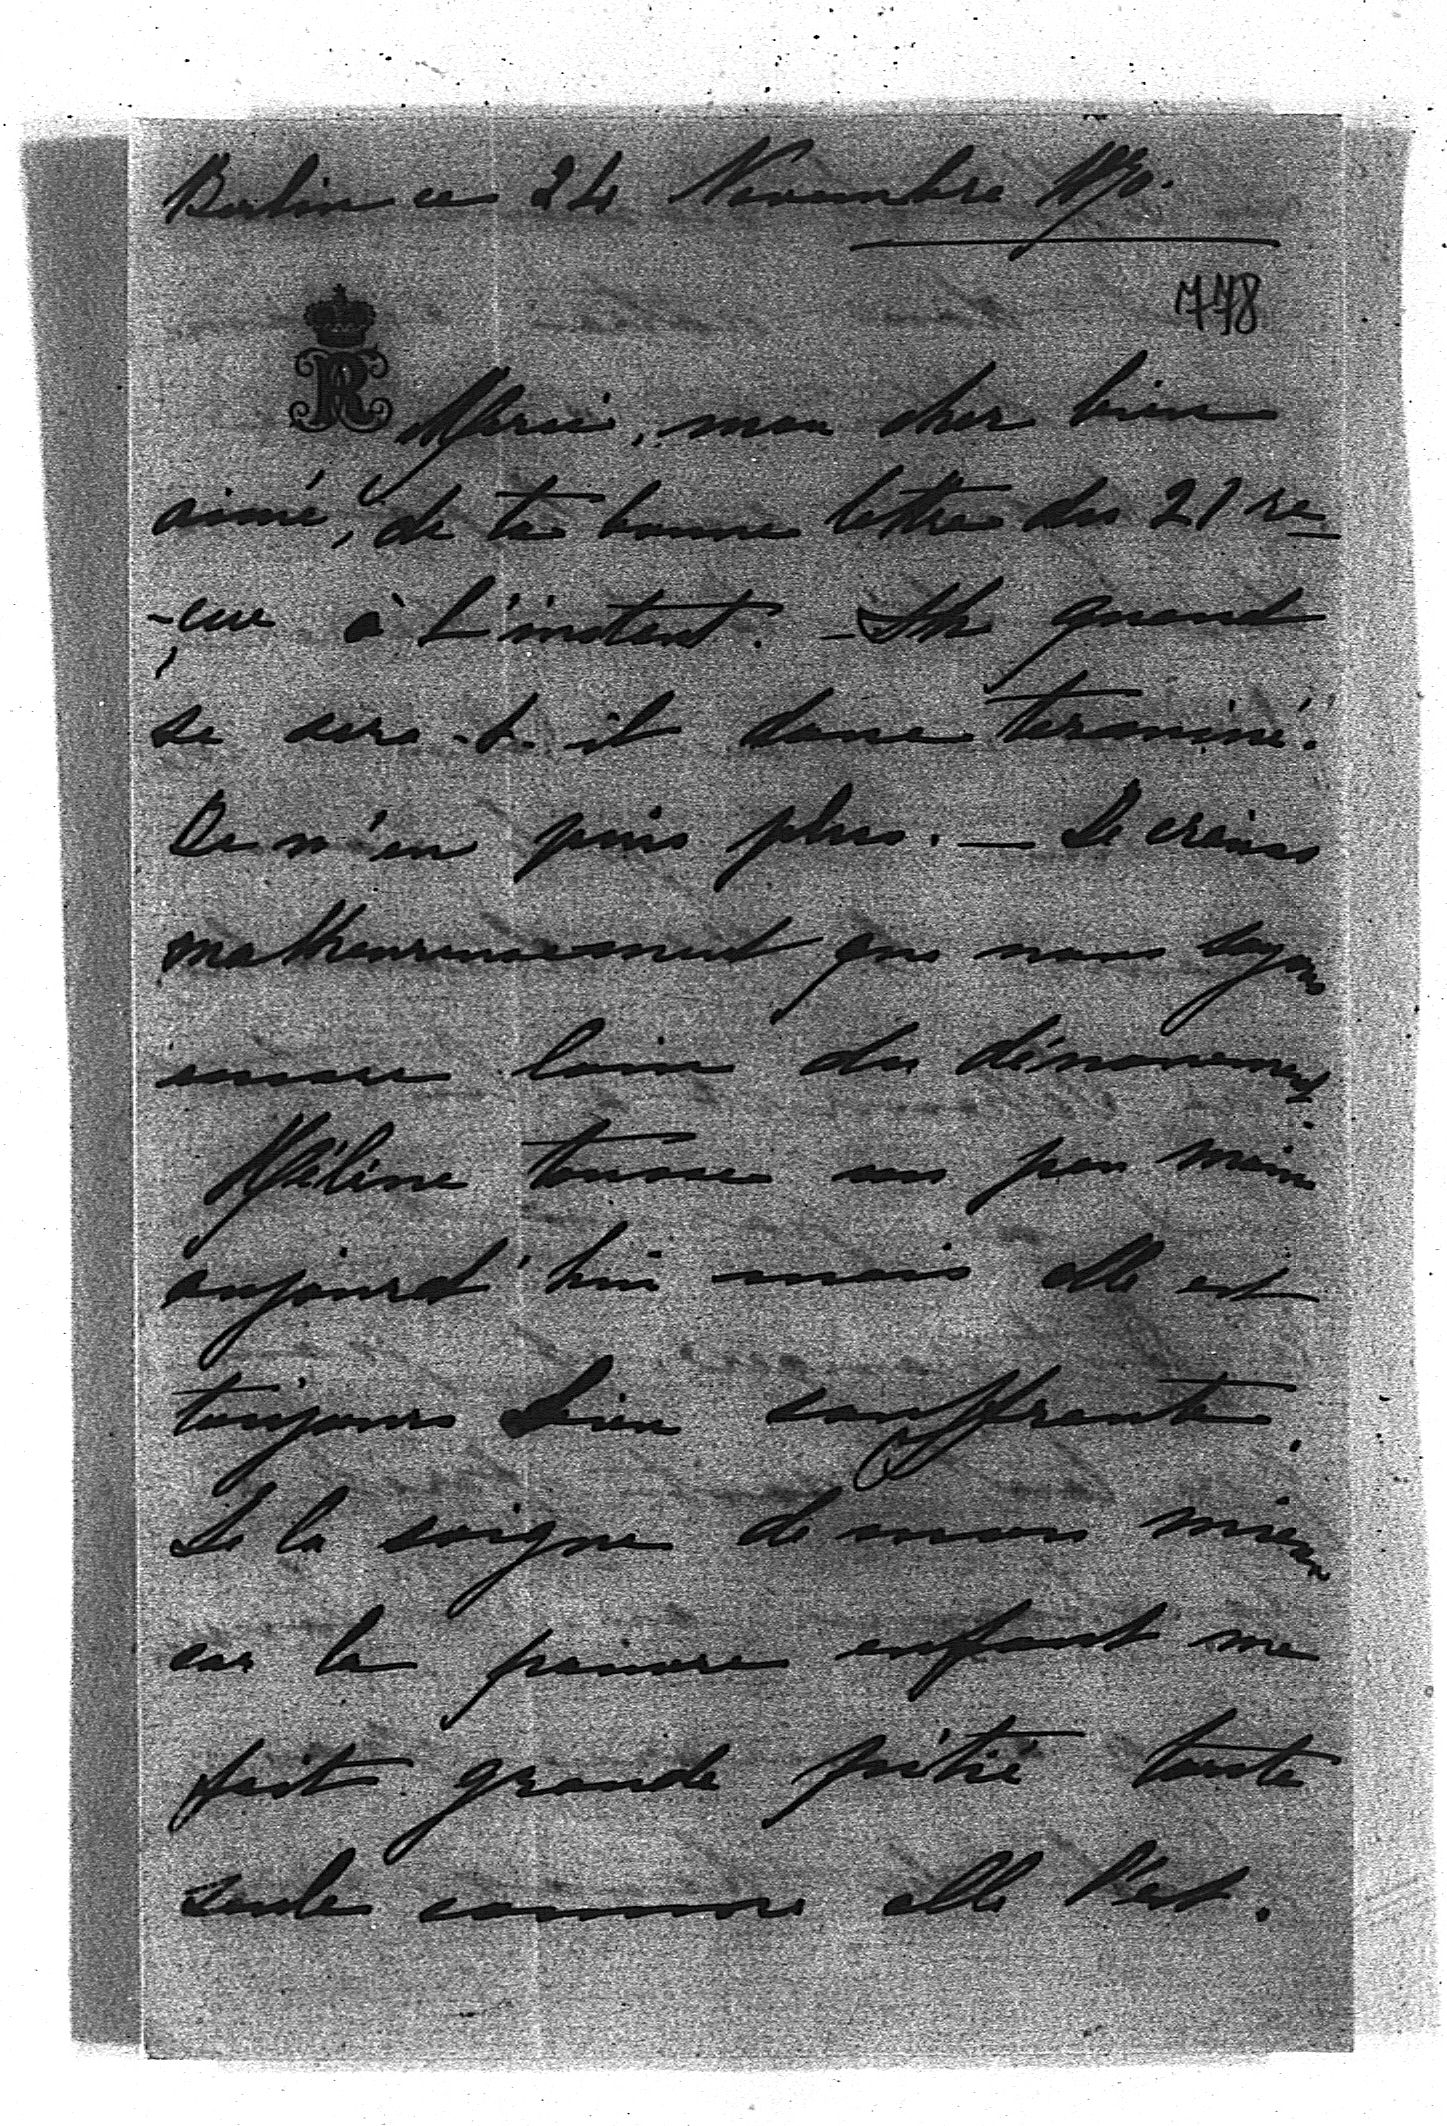 Berlin ce 24 Novembre 1870.
778
R
Merci, mon cher bien
aimé, de ta bonne lettre du 21 re
-çue à l'instant. - Ah quand
se sera-t-il donc terminé.
Je n'en puis plus. - Je crains
malheureusement que nous soyons
encore loin du dénouement.
Hélène tousse un peu moins
aujourd'hui mais elle est
toujours bien souffrante.
Je la soigne de mon mieux
car la pauvre enfant me
fait grande pitié toute
seule comme elle l'est.